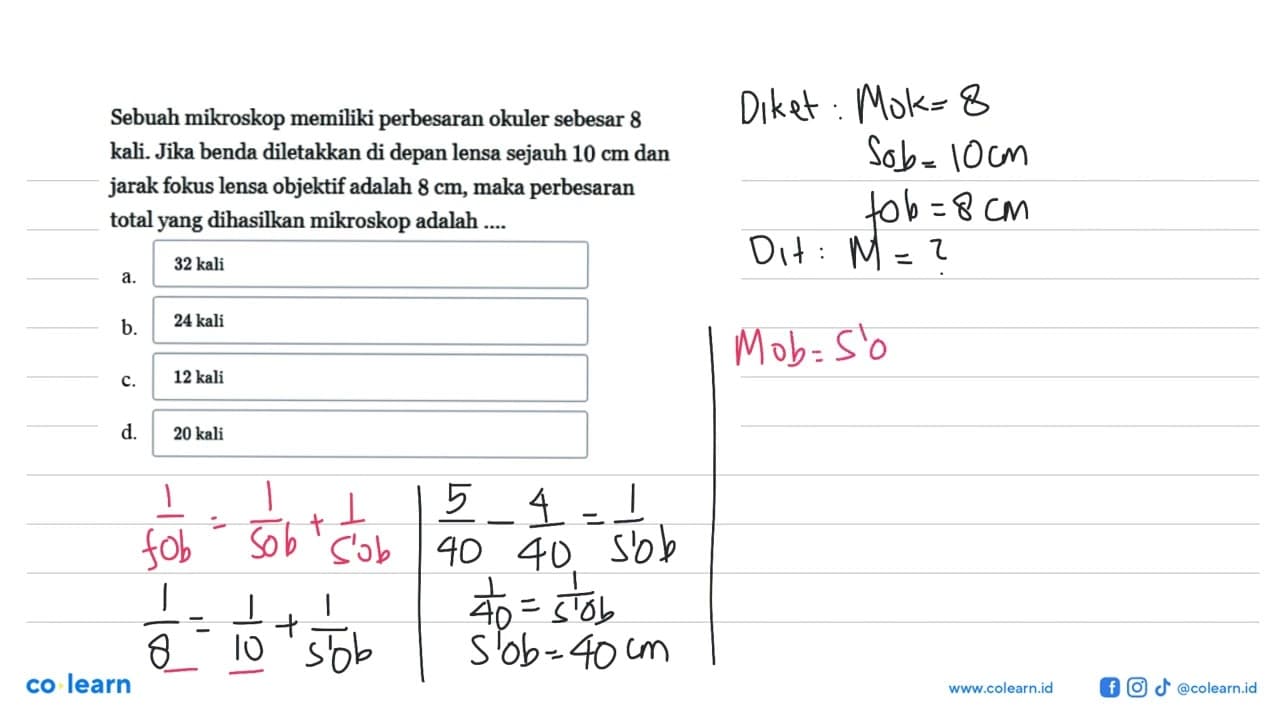 Sebuah mikroskop memiliki perbesaran okuler sebesar 8
kali. Jika benda diletakkan di depan lensa sejauh 10 cm dan
jarak fokus lensa objektif adalah 8 cm, maka perbesaran
total yang dihasilkan mikroskop adalah ....
a. 32 kali
b. 24 kali
c. 12 kali
d. 20 kali
1/fob = 1/Sob + 1/S'ob
1/8 = 1/10 + 1/S'ob
5/40 - 4/40 = 1/S'ob
1/40 = 1/S'ob
S'ob = 40 cm
Diket : Mok = 8
Sob = 10 cm
fob = 8 cm
Dit : M = ?
Mob = S'o
co learn
www.colearn.id
@colearn.id